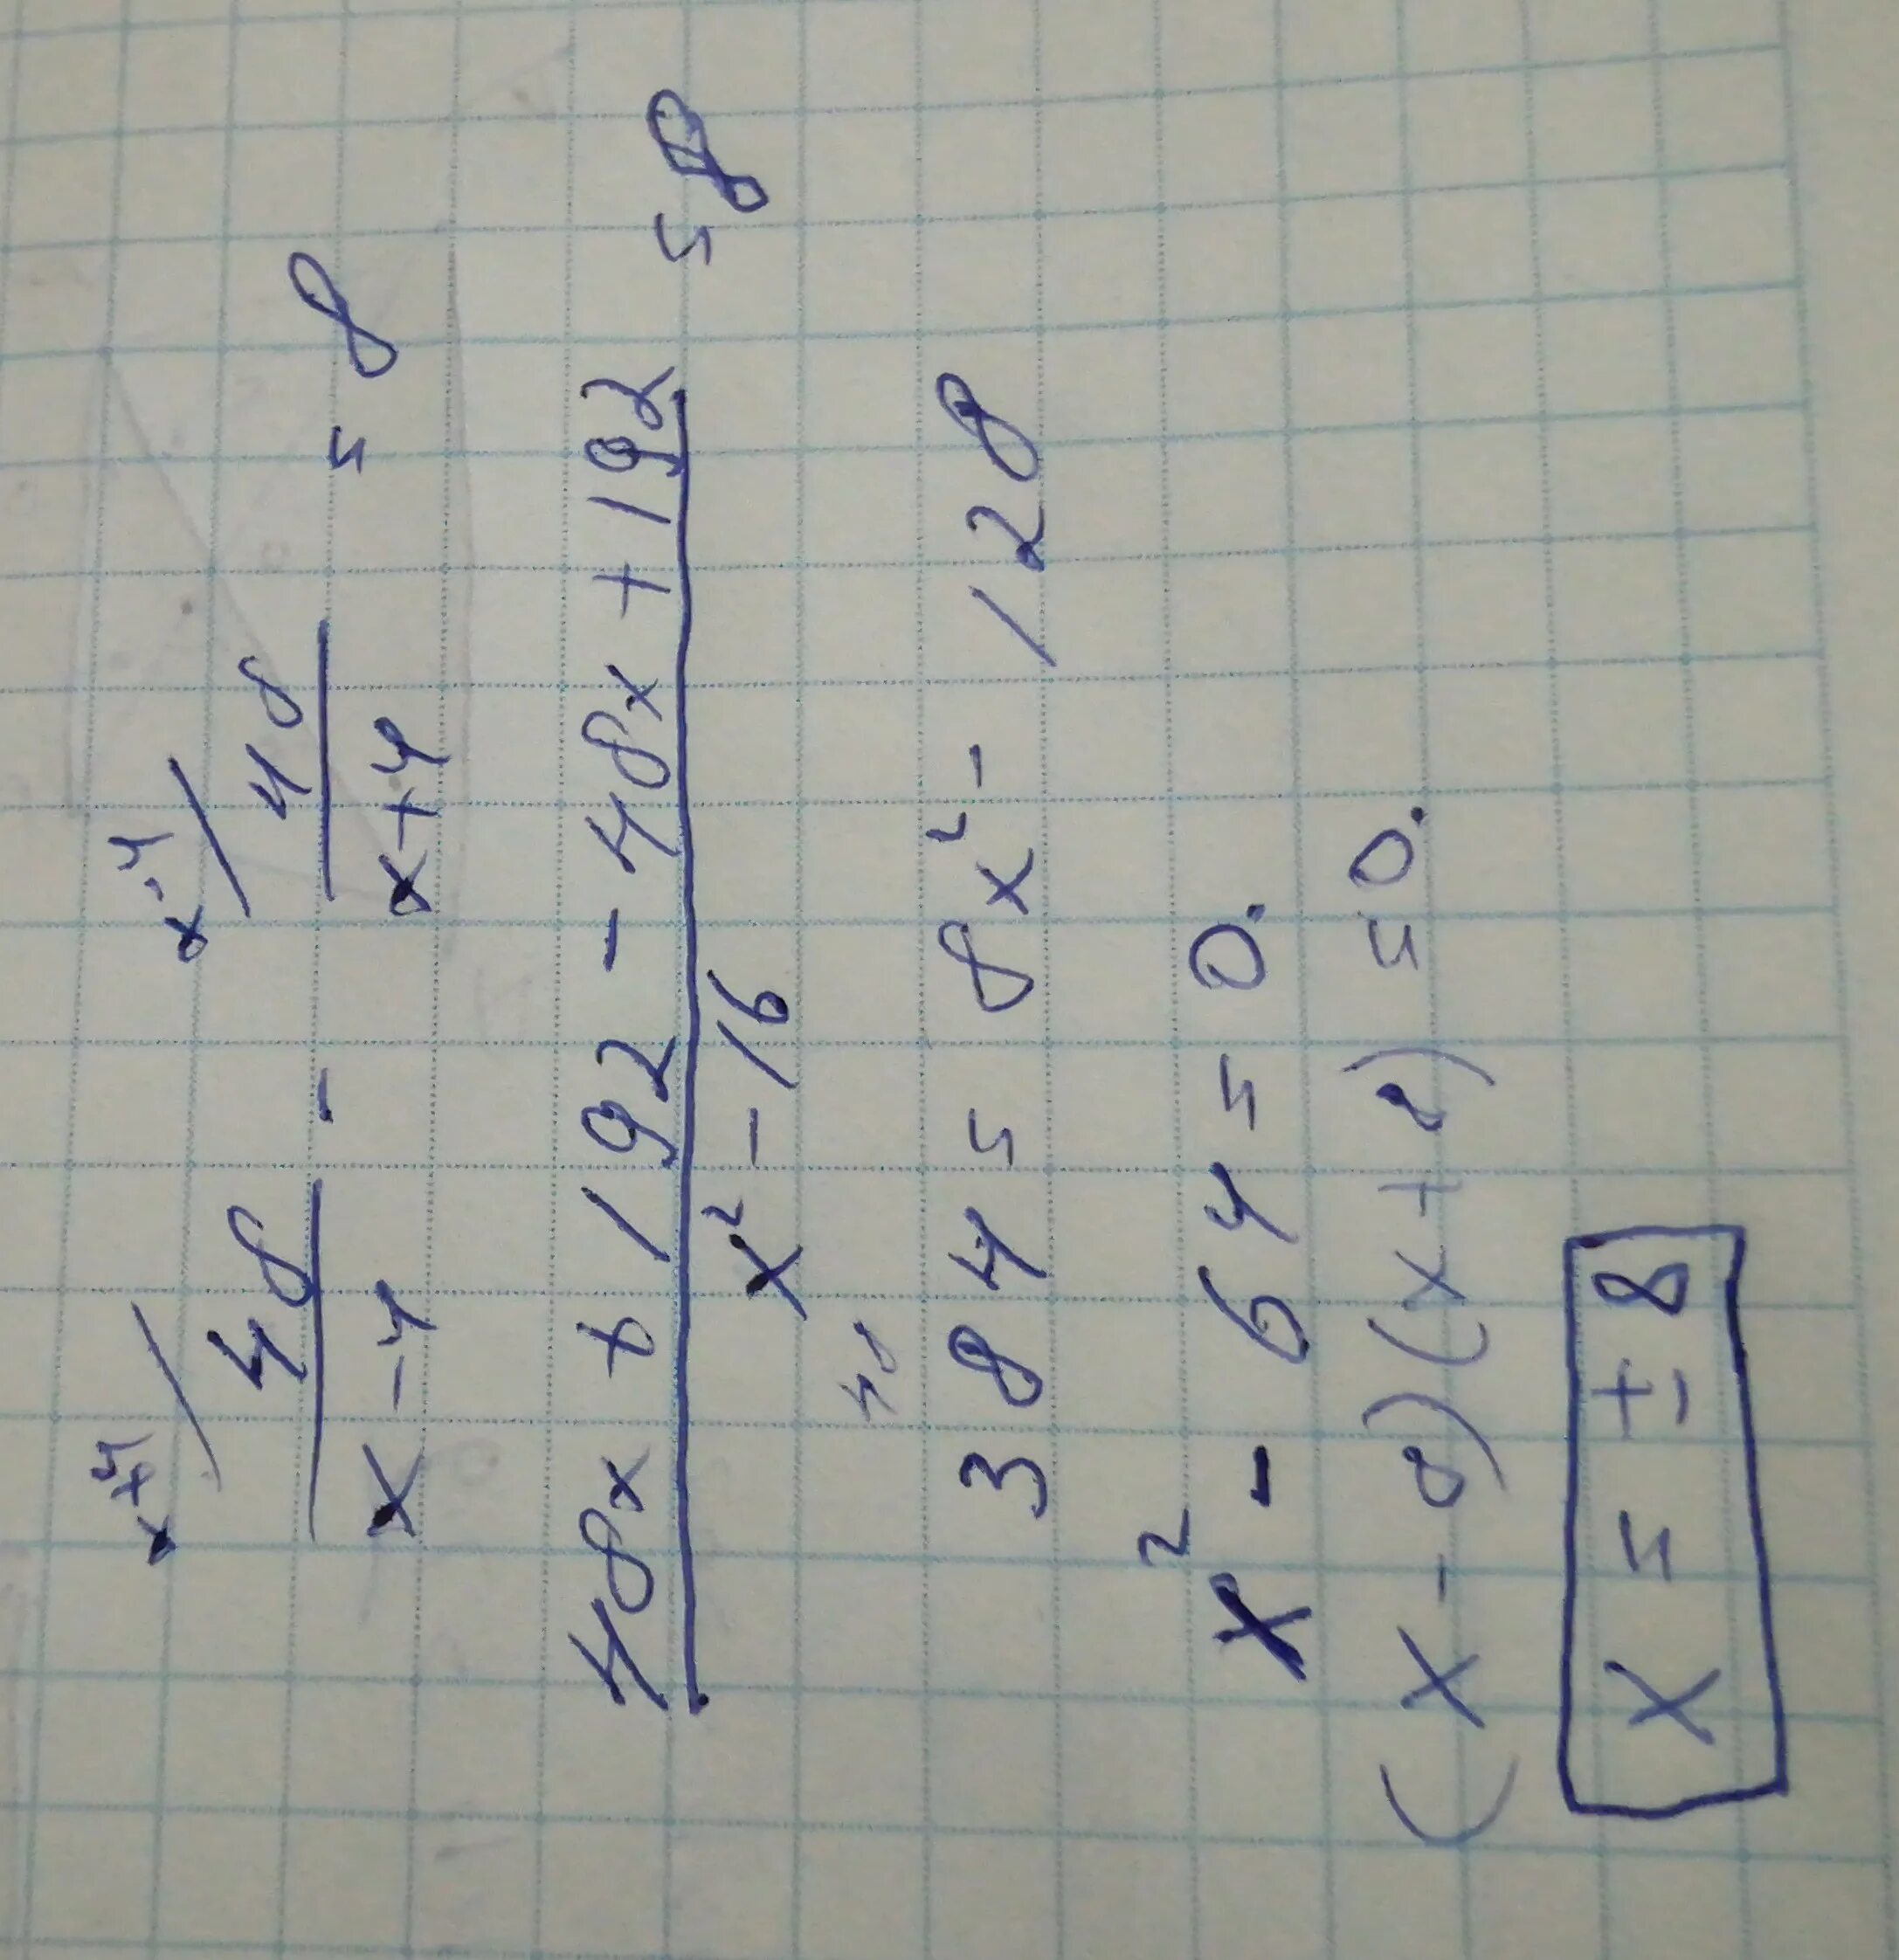 x+4/ 48/(x-4) - x-4/ 48/(x+4) = 8
(48x + 192 - 48x + 192)/(x² - 16) = 8
48
384 = 8x² - 128
x² - 64 = 0.
(x - 8)(x + 8) = 0.
x = ± 8